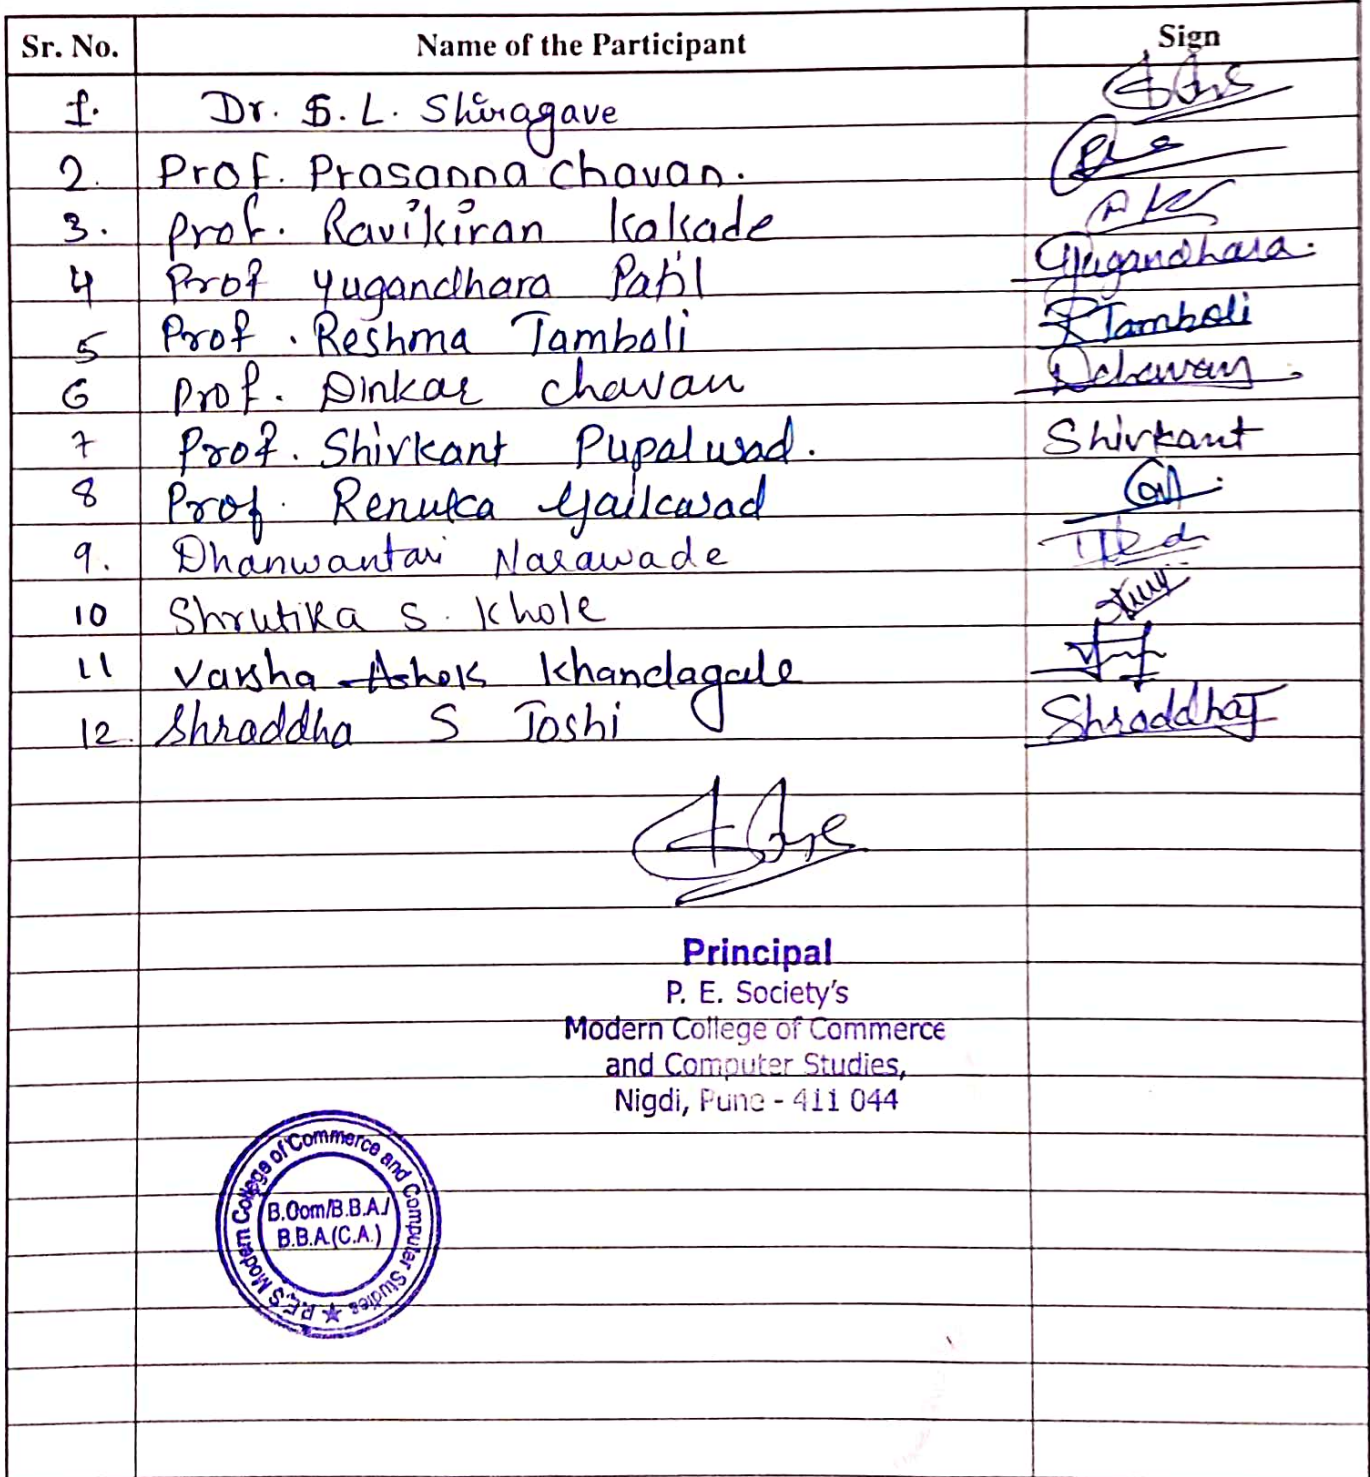 Sr. No. Name of the Participant Sign
1. Dr. S. L. Shiragave
2. Prof. Prasanna Chavan.
3. Prof. Ravikiran Kakade
4 Prof Yugandhara Patil Yugandhara.
5 Prof. Reshma Tamboli RTamboli
6 Prof. Dinkar Chavan Dchavan
7 Prof. Shivkant Pupalwad. Shivkant
8 Prof. Renuka Gaikwad
9. Dhanwantari Narawade
10 Shrutika S. Khole
11 Varsha Ashok Khandagale
12. Shraddha S Joshi ShraddhaJ
Principal
P. E. Society's
Modern College of Commerce
and Computer Studies,
Nigdi, Pune - 411 044
P.E.S Modern College of Commerce and Computer Studies
B.Com/B.B.A./
B.B.A.(C.A.)